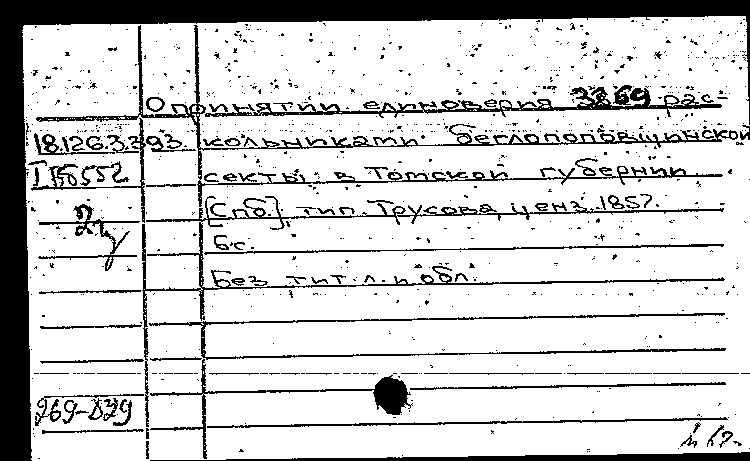 О принятии единоверия 3869 рас-
18.126.3.293 кольниками беглопоповщинской
секты в Томской губернии
[Спб], тип. Трусова, ценз. 1857.
6 с.
Без тит. л. и обл.
269-829